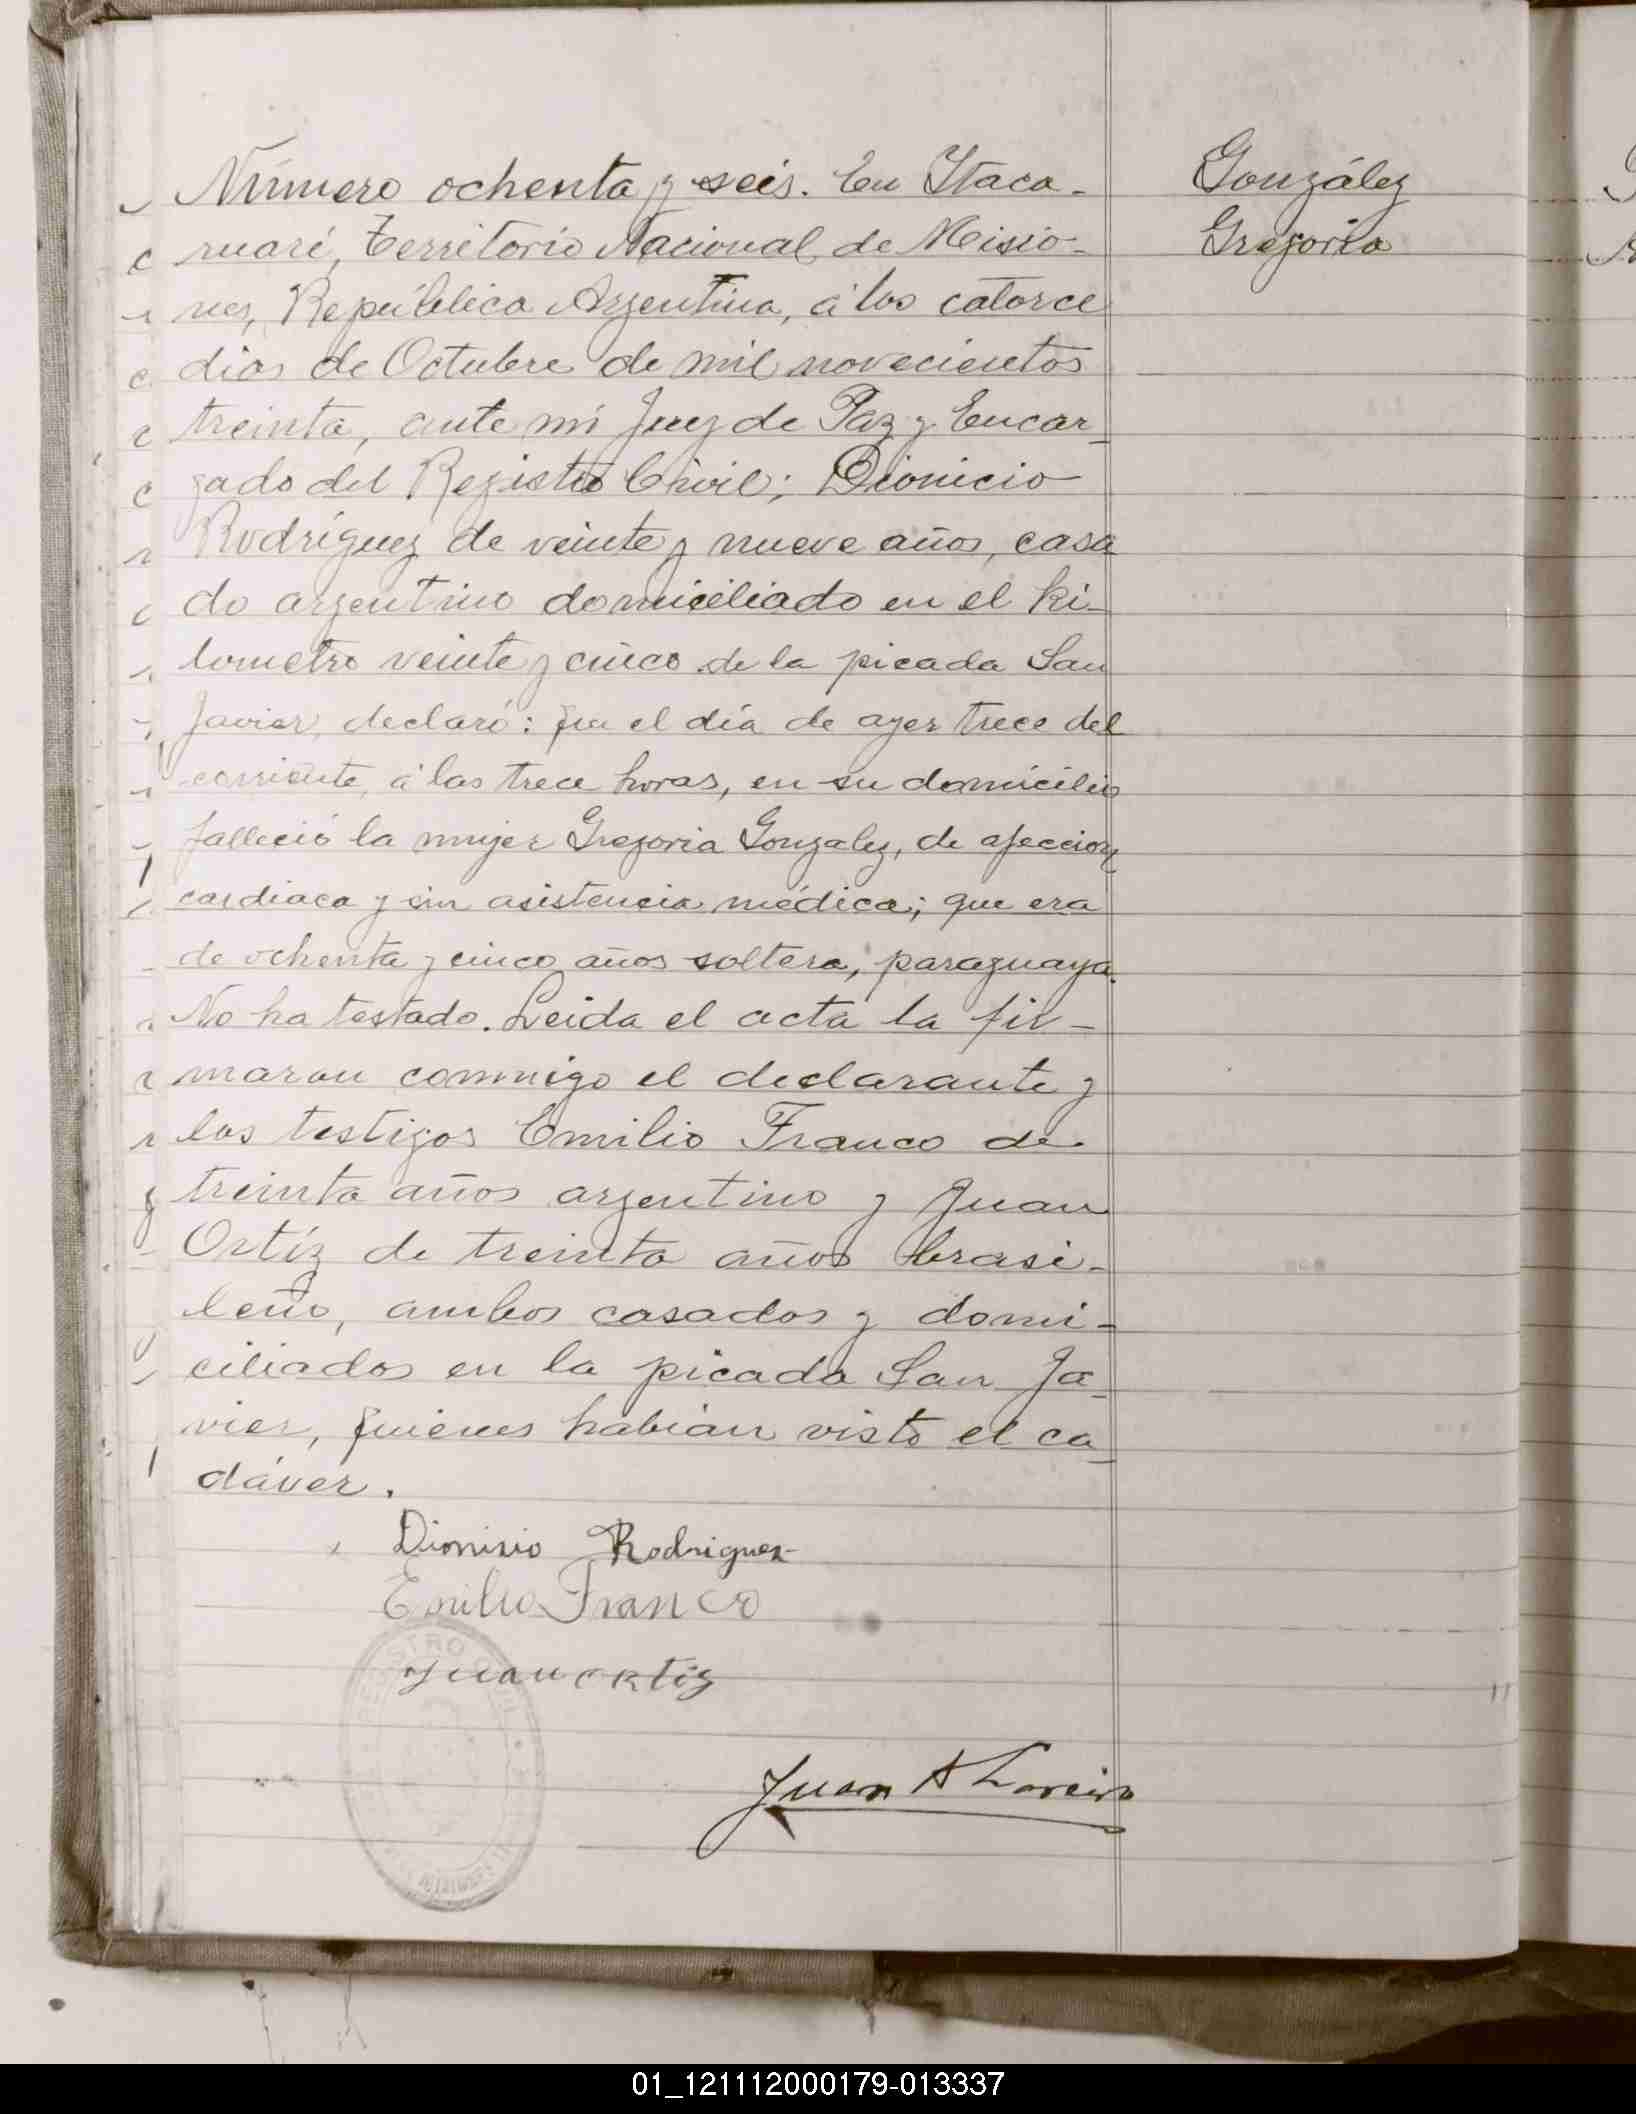 Número ochenta y seis. En Itaca-
ruaré, Territorio Nacional de Misio-
nes, República Argentina, á los catorce
dias de Octubre de mil novecientos
treinta, ante mi Juez de Paz y Encar-
gado del Registro Civil; Dionicio
Rodríguez de veinte y nueve años, casa
do argentino domiciliado en el ki-
lometro veinte y cinco de la picada San
Javier, declaró: que el día de ayer trece del
corriente, á las trece horas, en su domicilio
falleció la mujer Gregoria Gonzalez, de afeccion
cardiaca y sin asistencia médica; que era
de ochenta y cinco años soltera, paraguaya.
No ha testado. Leida el acta la fir-
maron conmigo el declarante y
los testigos Emilio Franco de
treinta años argentino y Juan
Ortíz de treinta años brasi-
leño, ambos casados y domi-
ciliados en la picada San Ja-
vier, quienes habían visto el ca-
dáver.
Dionisio Rodriguez
Emilio Franco
Juan Ortiz
Juan A
González
Gregoria
REGISTRO CIVIL
01_121112000179-013337